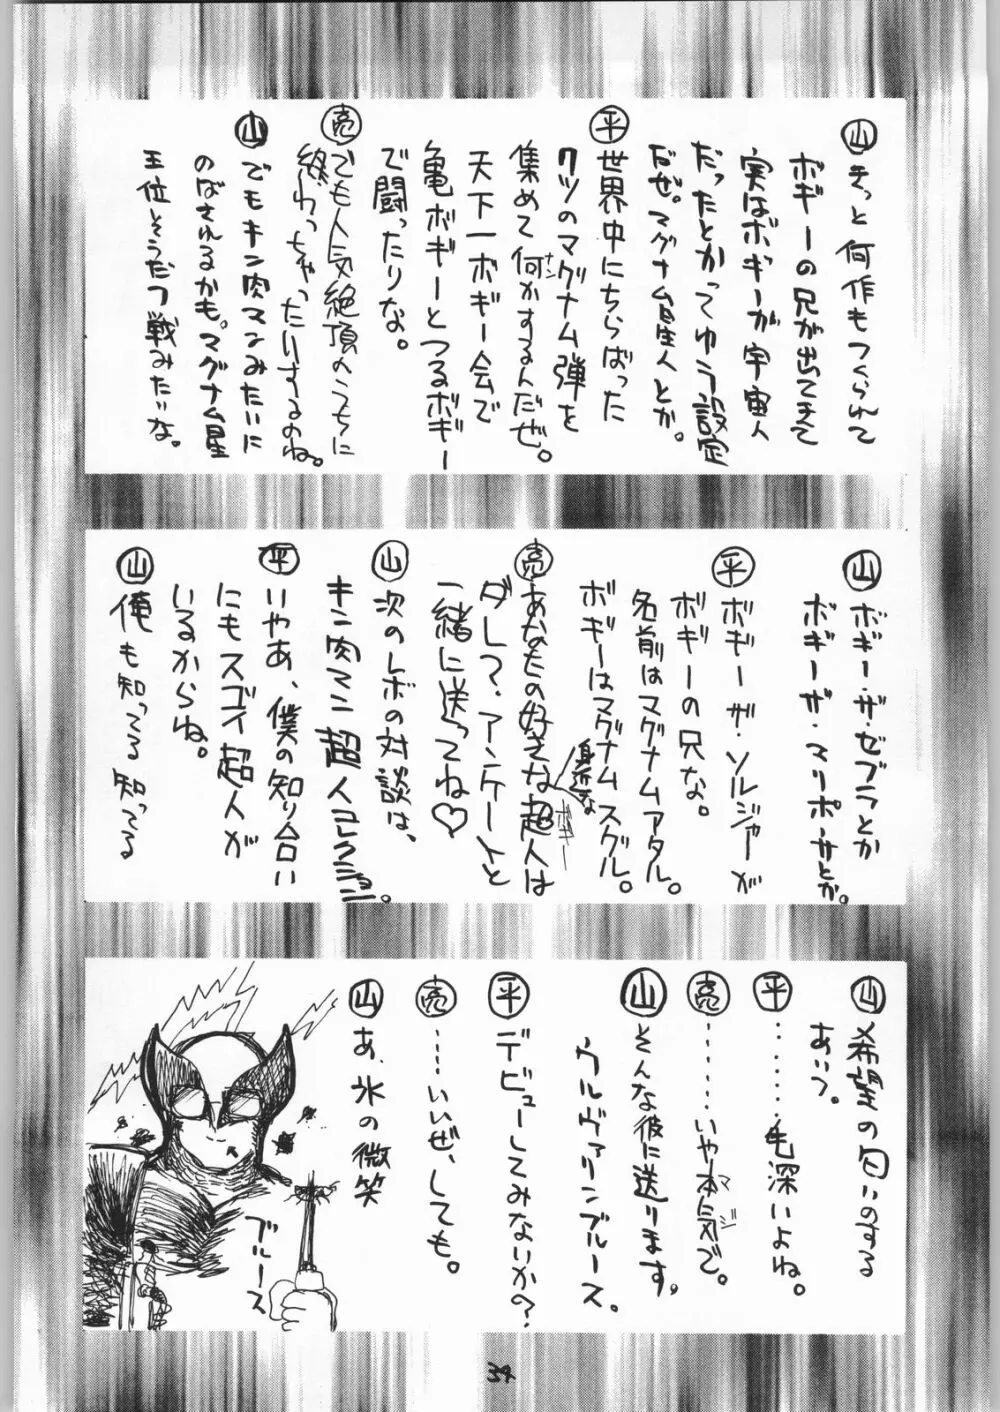 山 きっと何作もつくられて
ボギーの兄が出てきて
実はボギーが宇宙人
だったとかってゆう設定
だぜ。マグナム星人とか。
平 世界中にちらばった
7ツのマグナム弾を
集めて何かするんだぜ。
ナン
天下一ボギー会で
亀ボギーとつるボギー
で闘ったりな。
亮 でも人気絶頂のうちに
終わっちゃったりするのね。
山 でもキン肉マンみたいに
のばされるかも。マグナム星
王位そうだつ戦みたいな。
山 ボギー・ザ・ゼブラとか
ボギーザ・マリポーサとか。
平 ボギー ザ・ソルジャーが
ボギーの兄な。
名前はマグナムアタル。
ボギーはマグナムスグル。
亮 あなたの好きな超人は
身近な
ボギー
ダレ?アンケートと
一緒に送ってね♡
山 次のレボの対談は、
キン肉マン超人コレクション。
平 いやあ、僕の知り合い
にもスゴイ超人が
いるからね。
山 俺も知ってる知ってる
山 希望の匂いのする
あいつ。
平 ………毛深いよね。
亮 ………いや本気で。
マジ
山 そんな彼に送ります。
ウルヴァリンブルース。
平 デビューしてみないか?
亮 ……いいぜ、しても。
山 あ、氷の微笑
ブルース
34